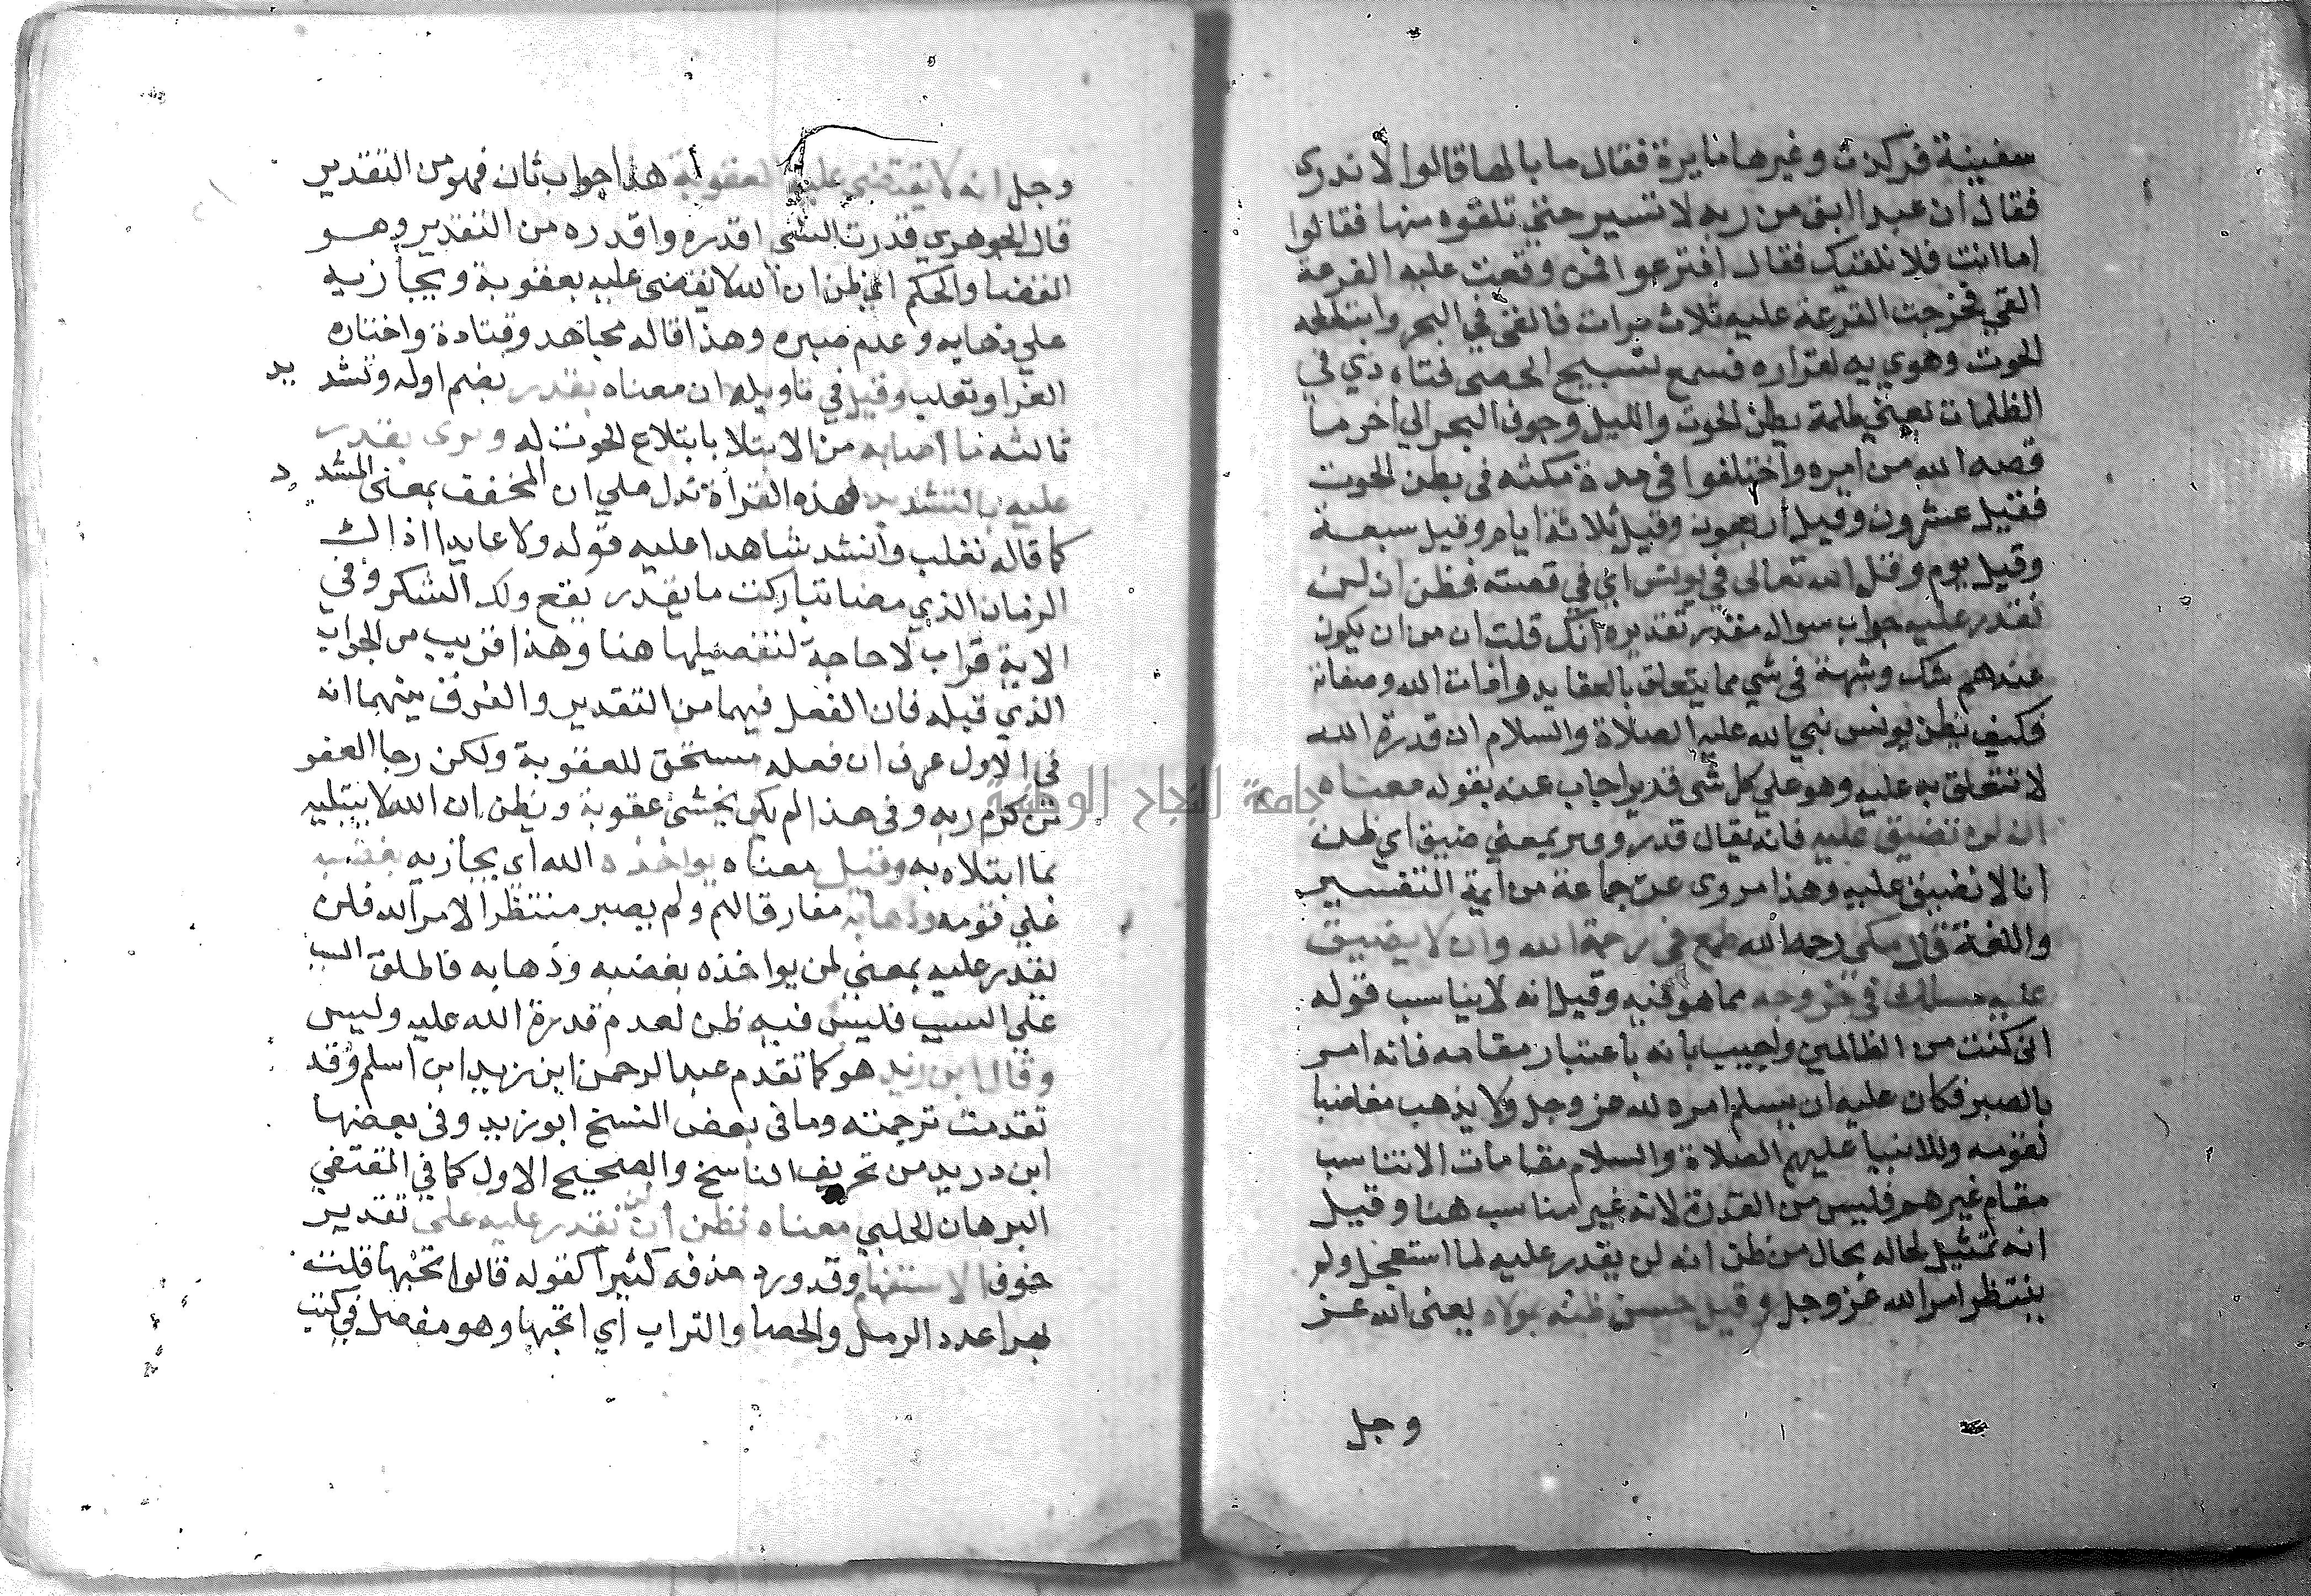 سفينة فركدت وغيرها سايرة فقال ما بالها قالوا لا ندري
فقال ان عبدا ابق من ربه لا تسير حتى تلقوه منها فقالوا
اما انت فلا نلقيك فقال اقترعوا فمن وقعت عليه القرعة
القي فخرجت القرعة عليه ثلاث مرات فالقى في البحر وابتلعه
الحوت وهوي به لقراره فسمع تسبيح الحصى فنادي في
الظلمات يعني ظلمة بطن الحوت والليل وجوف البحر الي اخر ما
قصه الله من امره واختلفوا في مدة مكثه في بطن الحوت
فقيل عشرون وقيل أربعون وقيل ثلاثة ايام وقيل سبعة
وقيل يوم وقال الله تعالى في يونس اي في قصته فظن ان لن
نقدر عليه جواب سوال مقدر تقديره انك قلت ان من ان يكون
عندهم شك وشبهة في شي مما يتعلق بالعقايد وذات الله وصفاته
فكيف يظن يونس نبي الله عليه الصلاة والسلام ان قدرة الله
لا تتعلق به عليه وهو علي كل شي قدير اجاب عنه بقوله معناه
ان لن نضيق عليه فانه يقال قدر وقتر بمعني ضيق اي ظن
انا لا نضيق عليه وهذا مروى عن جماعة من ايمة التفسير
واللغة قال مكي رحمه الله طمع في رحمة الله وان لا يضيق
عليه مسلك في خروجه مما هو فيه وقيل انه لا يناسب قوله
اني كنت من الظالمين واجيب بانه باعتبار مقامه فانه امر
بالصبر فكان عليه ان يسلم امره لله عز وجل ولا يذهب مغاضبا
لقومه وللانبيا عليهم الصلاة والسلام مقامات لا تناسب
مقام غيرهم فليس من القدرة لانه غير مناسب هنا وقيل
انه تمثيل لحاله بحال من ظن انه لن يقدر عليه لما استعجل ولم
ينتظر امر الله عز وجل وقيل حسن ظنه بمولاه يعني الله عز
وجل
وجل انه لا يقتضي عليه العقوبة هذا جواب ثان فهو من التقدير
قال الجوهري قدرت الشي اقدره واقدره من التقدير وهو
القضا والحكم اي ظن ان الله لا يقضى عليه بعقوبة ويجازيه
علي ذهابه وعدم صبره وهذا قاله مجاهد وقتادة واختاره
الفرا وثعلب وقيل في تاويله ان معناه يقدر بضم اوله وتشديد
ثالثه ما اصابه من الابتلا بابتلاع الحوت له وروى يقدر
عليه بالتشديد فهذه القرأة تدل علي ان المخفف بمعنى المشدد
كما قاله ثعلب وانشد شاهدا عليه قوله ولا عايدا اذاك
الزمان الذي مضا تباركت ما يقدر يقع ولك الشكر وفي
الاية قرات لا حاجة لتفصيلها هنا وهذا قريب من الجواب
الذي قبله فان الفعل فيهما من التقدير والفرق بينهما انه
في الاول عرف ان فعله مستحق للعقوبة ولكن رجا العفو
من كرم ربه وفي هذا لم يكن يخشى عقوبة ويظن ان الله لا يبتليه
بما ابتلاه به وقيل معناه يواخذه الله اي يجازيه بغضبه
علي قومه وذهابه مفارقا لهم ولم يصبر منتظرا لامر الله فلن
نقدر عليه بمعني لن يواخذه بغضبه وذهابه فاطلق السبب
على المسبب فليس فيه ظن لعدم قدرة الله عليه وليس
وقال ابن زيد هو كما تقدم عبد الرحمن ابن زيد ابن اسلم وقد
تقدمت ترجمته وما في بعض النسخ ابو زيد وفي بعضها
ابن دريد من تحريف الناسخ والصحيح الاول كما في المقتفي
البرهان الحلبي معناه نظن أن لن نقدر عليه على تقدير
حذف الاستفهام وقد ورد حذفه كثيرا كقوله قالوا تحبها قلت
بهرا عدد الرمل والحصا والتراب اي اتحبها وهو مفصل في كتب
جامعة النجاح الوطنية